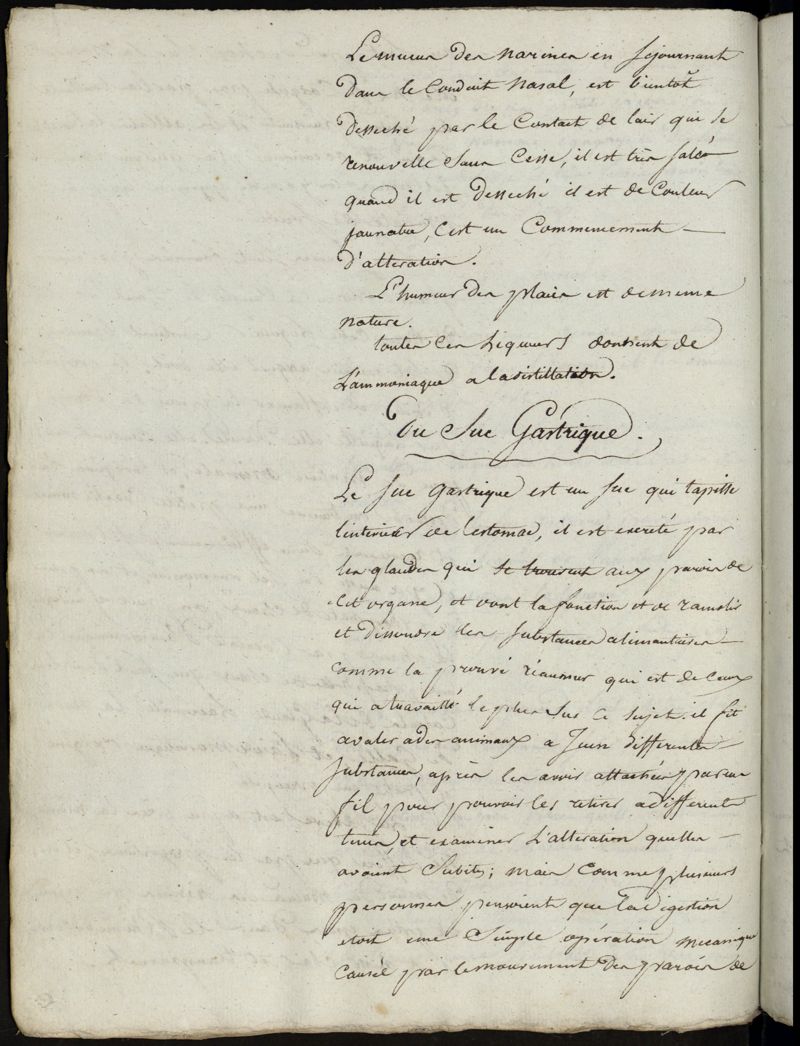 Le mucus des narines en sejournant
dans le Conduit Nasal, est bientôt
desseché par le Contact de lair qui se
renouvelle sans Cesse, il est très salé
quand il est desseché il est de Couleur
jaunatre, c'est un Commencement
d'alteration.
L'humeur des plaies est de meme
nature.
toutes ces liqueurs donnent de
L'ammoniaque a la distillation.
Du Suc Gastrique.
Le suc gastrique est un suc qui tapisse
l'interieur de l'estomac, il est excrété par
les glandes qui se trouvent aux parois de
Cet organe, et dont la fonction est de ramolir
et dissoudre les substances alimentaires
comme la prouvé réaumur qui est de Ceux
qui a travaillé le plus sur ce sujet. il fit
avaler a des animaux a Jeun differentes
substances, après les avoir attachées par un
fil pour pouvoir les retirer a differents
tems, et examiner L'alteration quelles
avoient Subits; mais Comme plusieurs
personnes pensoient que la digestion
etoit une Simple opération mecanique
Causée par le mouvement des parois de